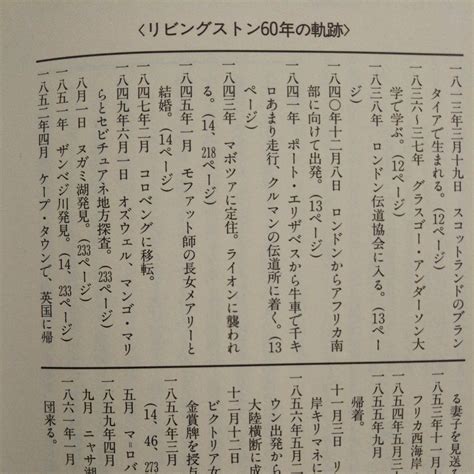 〈リビングストン60年の軌跡〉
一八一三年三月十九日　スコットランドのブラン
タイアで生まれる。（12ページ）
一八三六〜三七年　グラスゴー・アンダーソン大
学で学ぶ。（12ページ）
一八三八年　ロンドン伝道協会に入る。（13ペー
ジ）
一八四〇年十二月八日　ロンドンからアフリカ南
部に向けて出発。（13ページ）
一八四一年　ポート・エリザベスから牛車で千キ
ロあまり走行、クルマンの伝道所に着く。（13
ページ）
一八四三年　マボツァに定住。ライオンに襲われ
る。（14、218ページ）
一八四五年一月　モファット師の長女メアリーと
結婚。（14ページ）
一八四七年二月　コロベングに移転。
一八四九年六月一日　オズウェル、マンゴ・マリ
らとセビチュアネ地方探査。（233ページ）
八月一日　ヌガミ湖発見。（233ページ）
一八五一年　ザンベジ川発見。（14、233ページ）
一八五二年四月　ケープ・タウンで、英国に帰
る妻子を見送
一八五三年十一月
フリカ西海岸
一八五四年五月
帰着。
十一月三日　リ
岸キリマネに
一八五六年五月
ウン出発から
大陸横断に成
十二月十二日
ビクトリア女
金賞牌を授与
一八五八年三月
（14、46、273
五月　マ＝ロバ
一八五九年四月
九月　ニャサ湖
一八六一年一月
団来る。